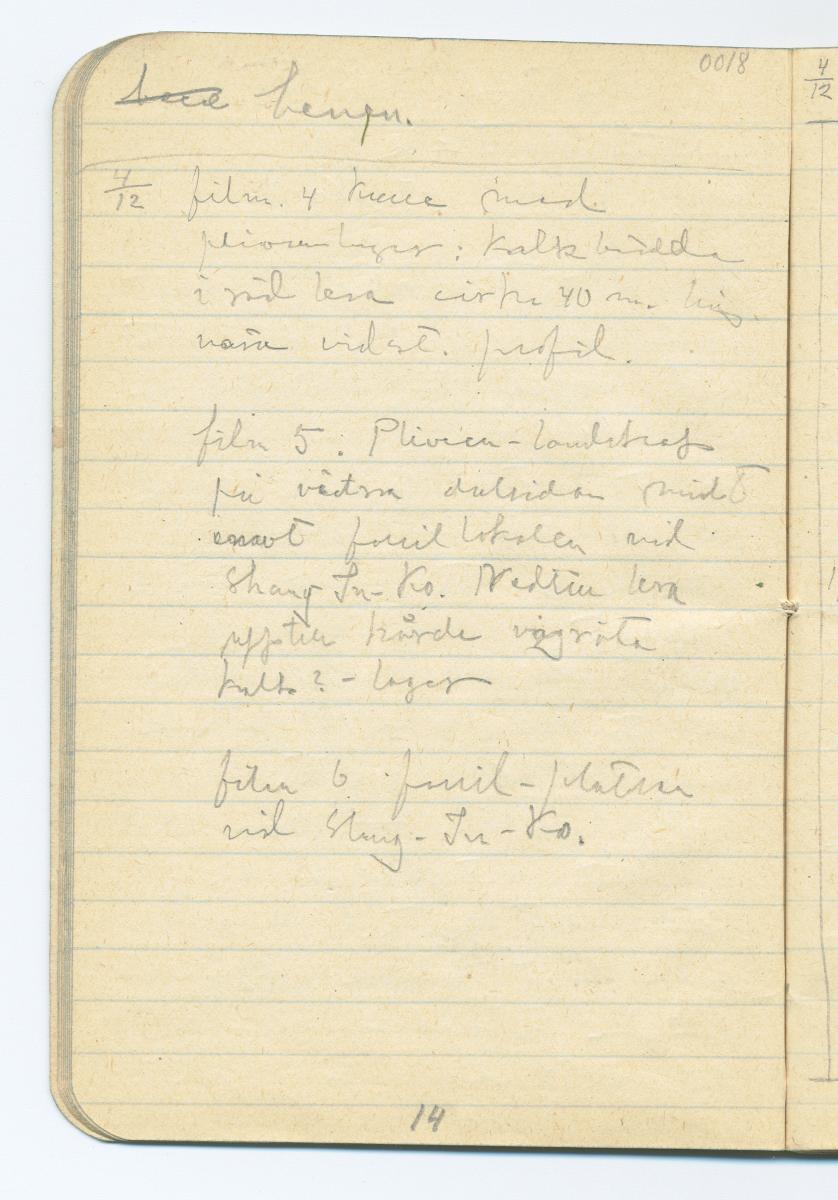 0018
benen.
4/12 film. 4 med
pliocenlager: Kalkbädda
i röd lera cirka 40 m. hög.
nära vidst. profil.
film 5. Pliocen-landskap
på västra dalsidan midt
emot fossillokalen vid
Shang-In-Ko. Nedtill lera
upptill hårda vågräta
kalk?-lager
film 6 fossil-platsen
vid Shang-In-Ko.
14
4/12